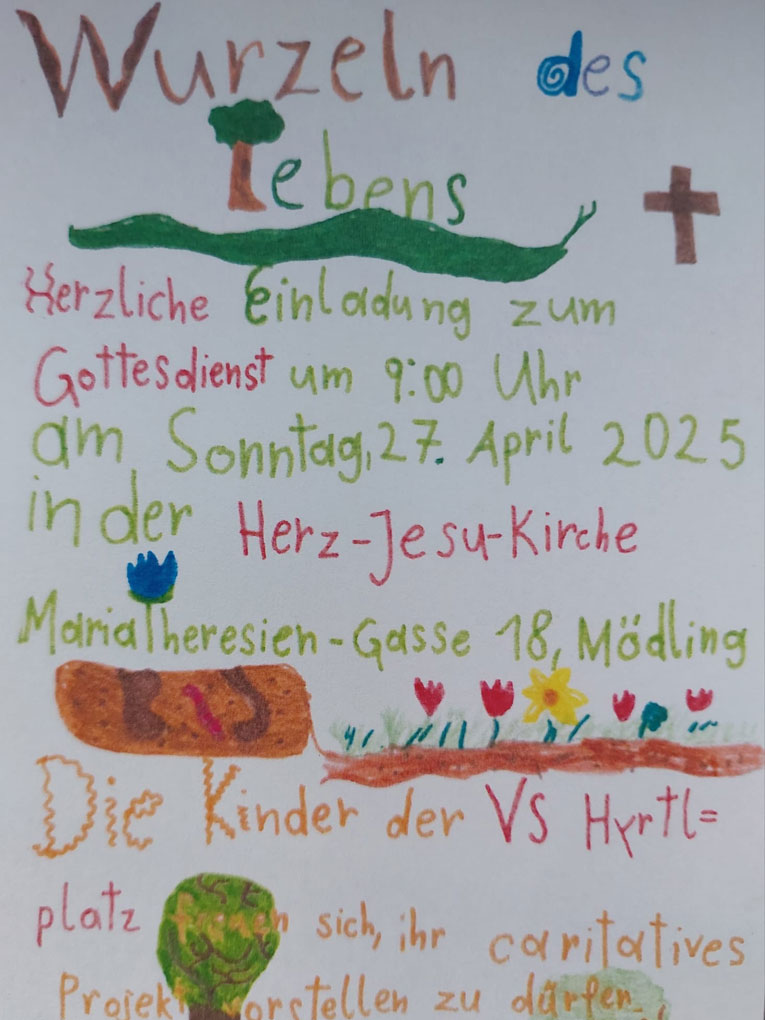 Wurzeln des
Lebens
Herzliche Einladung zum
Gottesdienst um 9:00 Uhr
am Sonntag, 27. April 2025
in der Herz-Jesu-Kirche
Maria Theresien-Gasse 18, Mödling
Die Kinder der VS Hyrtl=
platz freuen sich, ihr caritatives
Projekt vorstellen zu dürfen.